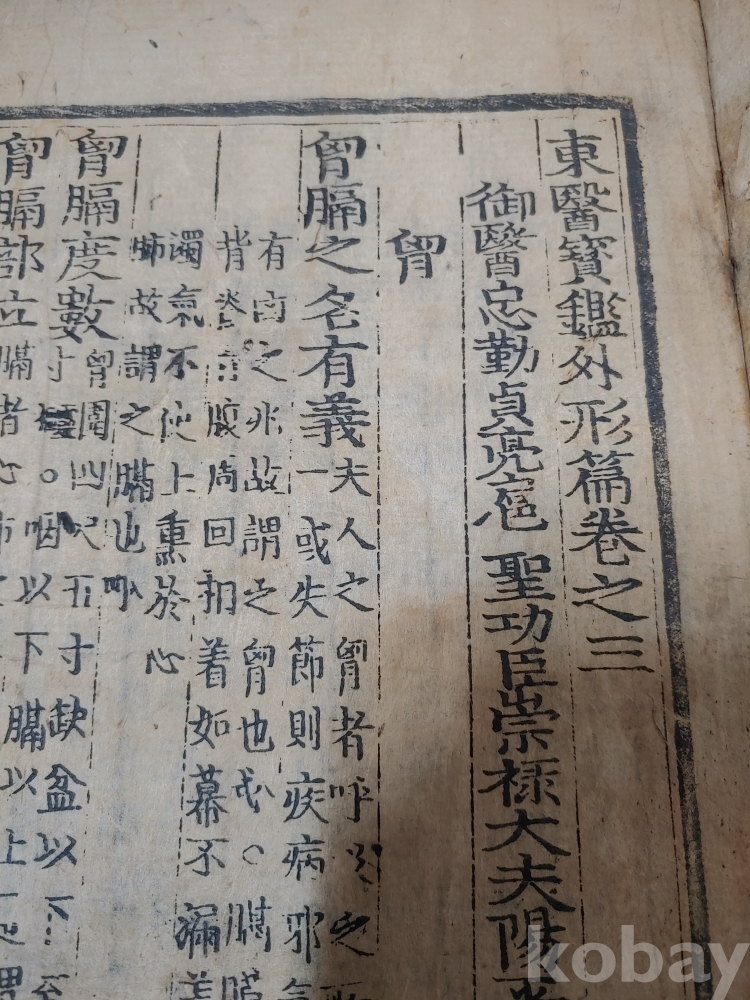 東醫寶鑑外形篇卷之三
御醫忠勤貞亮扈 聖功臣崇祿大夫陽
胷
胷膈之名有義
夫人之胷者呼吸之所
一或失節則疾病邪氣
有凶之兆故謂之胷也 ○膈
背 腹周回相着如幕不漏
濁氣不使上熏於心
肺故謂之膈也
胷膈度數
胷圍四尺五寸缺盆以下至
寸 ○咽以下膈以上
胷膈部位
膈者心肺
kobay